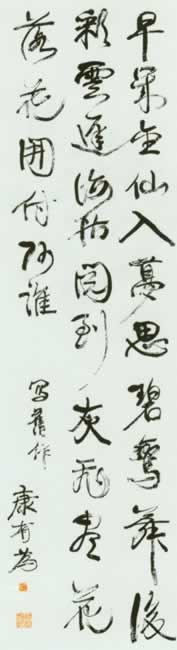 早歲金仙入夢思碧鸞舞後
彩雲遲海枯閱到灰飛盡花
落花開付阿誰
写舊作
康有為